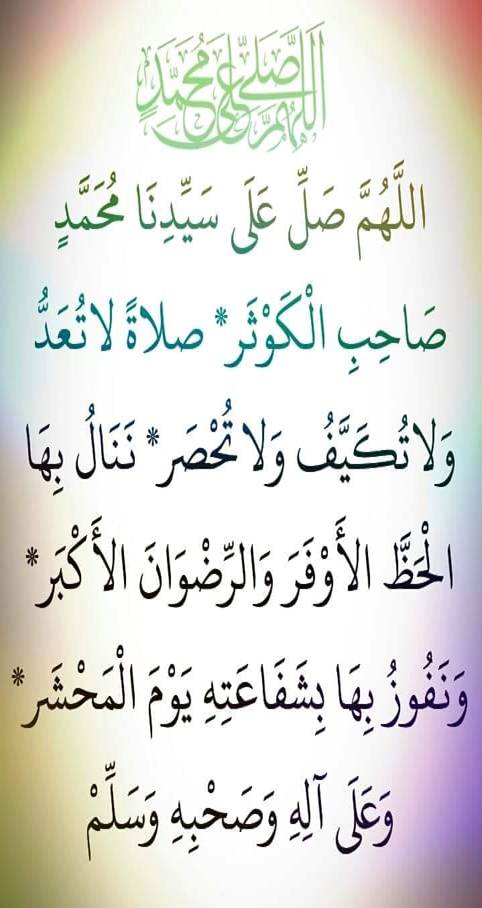 اللهم صل على محمد
اللَّهُمَّ صَلِّ عَلَى سَيِّدِنَا مُحَمَّدٍ
صَاحِبِ الْكَوْثَر * صلاةً لاتُعَدُّ
وَلاتُكَيَّفُ وَلاتُحْصَر * نَنَالُ بِهَا
الْحَظَّ الأَوْفَرَ وَالرِّضْوَانَ الأَكْبَر *
وَنَفُوزُ بِهَا بِشَفَاعَتِهِ يَوْمَ الْمَحْشَر *
وَعَلَى آلِهِ وَصَحْبِهِ وَسَلِّمْ